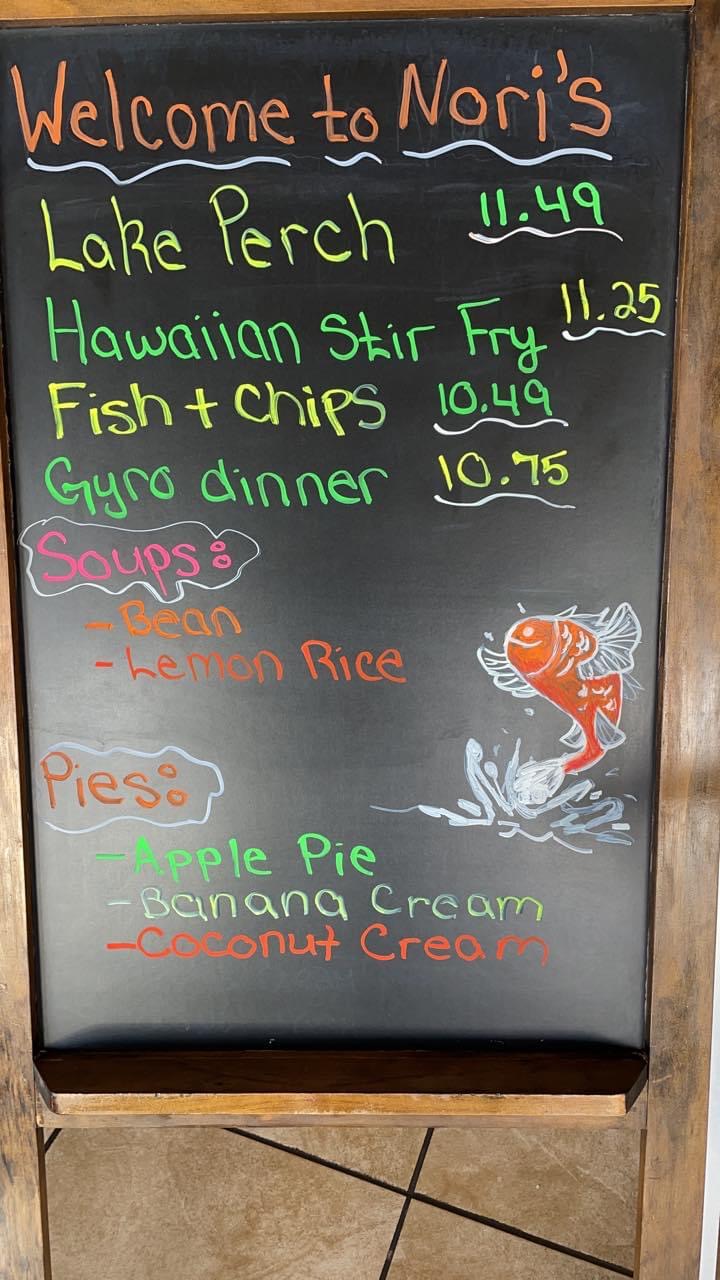 Welcome to Nori's
Lake Perch 11.49
Hawaiian Stir Fry 11.25
Fish + Chips 10.49
Gyro dinner 10.75
Soups:
- Bean
- Lemon Rice
Pies:
- Apple Pie
- Banana Cream
- Coconut Cream